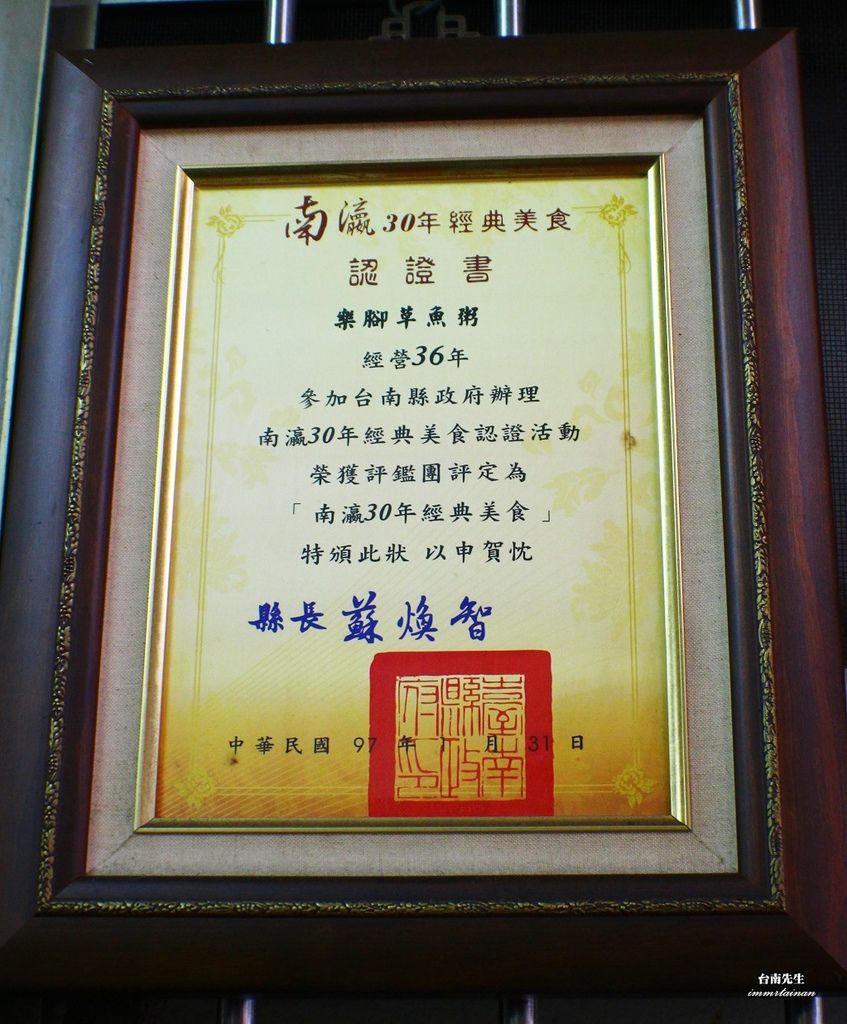 南瀛30年經典美食
認證書
樂腳草魚粥
經營36年
參加台南縣政府辦理
南瀛30年經典美食認證活動
榮獲評鑑團評定為
「南瀛30年經典美食」
特頒此狀 以申賀忱
縣長 蘇煥智
中華民國 97 年 1 月 31 日
臺南縣政府印
台南先生
immrtainan